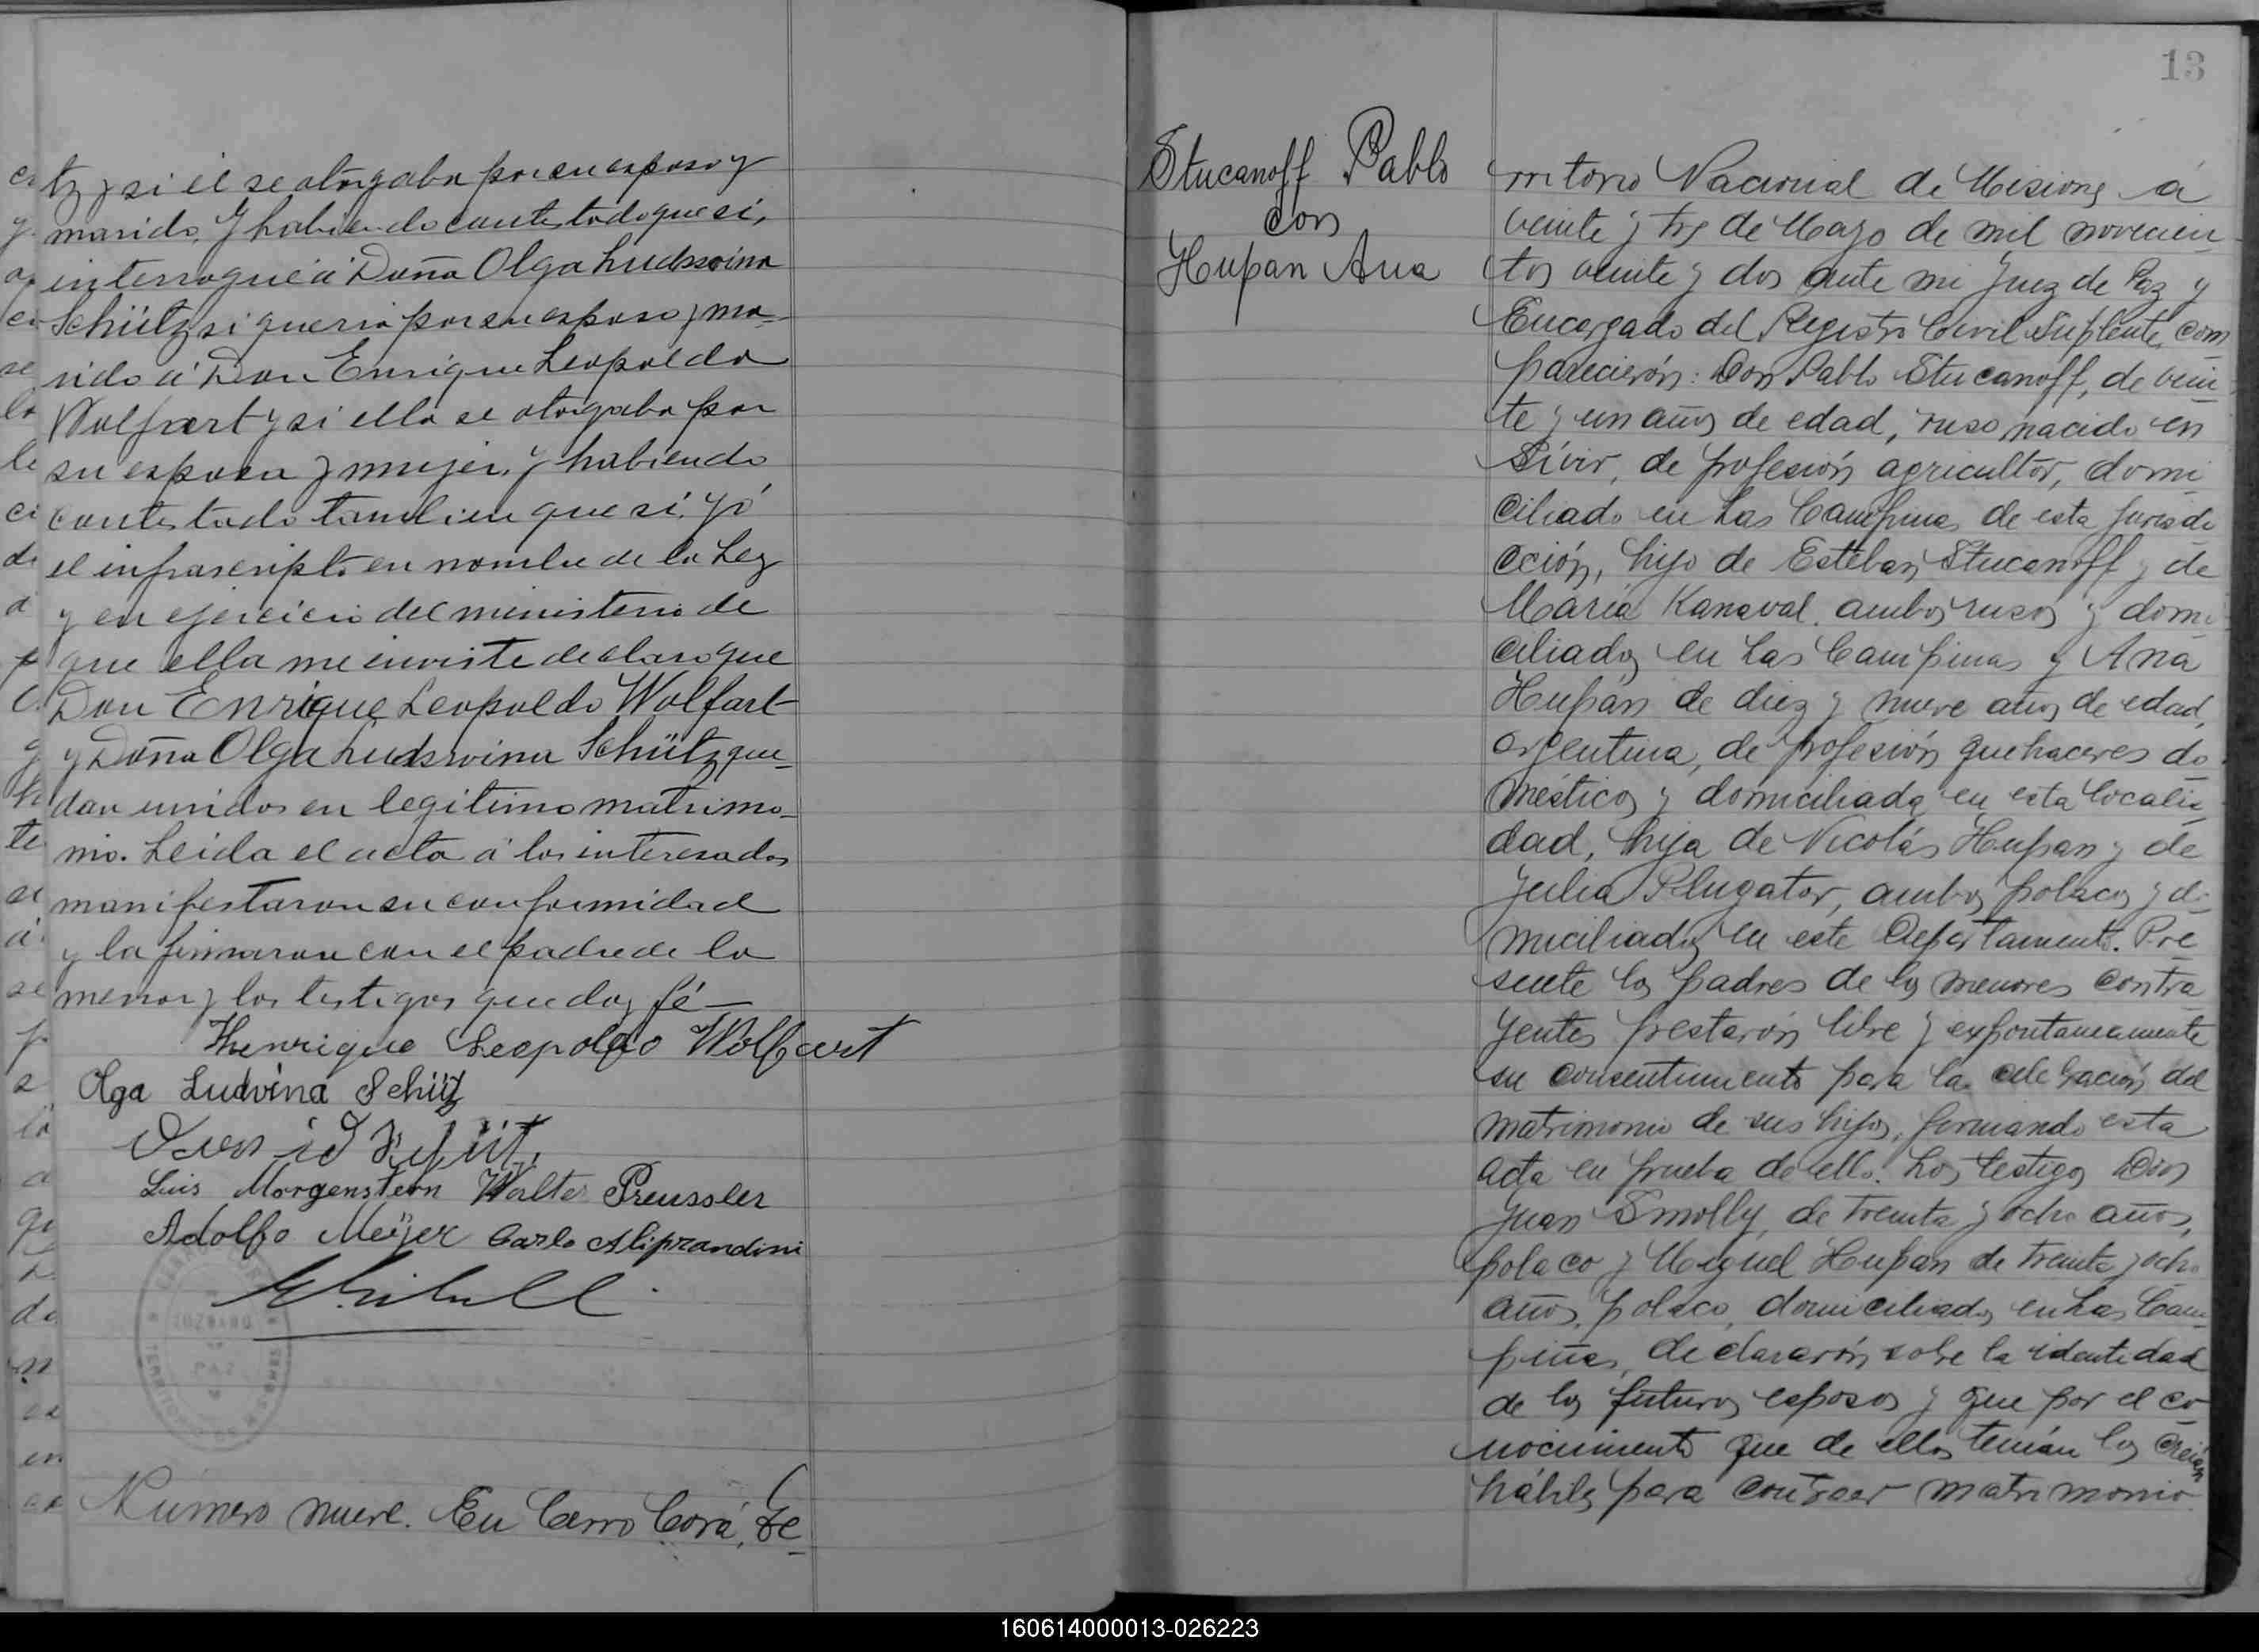 tz y si él se otorgaba por su esposo y
marido. Y habiendo contestado que si,
interrogué á Doña Olga Ludswina
Schütz si queria por su esposo y ma-
rido á Don Enrique Leopoldo
Wolfart y si ella se otorgaba por
su esposa y mujer, y habiendo
contestado tambien que si, yó
el infrascripto en nombre de la Ley
y en ejercicio del ministerio de
que ella me enviste declaro que
Don Enrique Leopoldo Wolfart
y Doña Olga Ludswina Schütz que-
dan unidos en legitimo matrimo-
nio. Leida el acta á los interesados
manifestaron su conformidad
y la firmaron con el padre de la
menor y los testigos que doy fé—
Henrique Leopoldo Wolfart
Olga Ludvina Schüz
Luis Morgenstern Walter Preussler
Adolfo Meÿer Carlo Aliprandini
JUZGADO
PAZ
Numero nueve. En Cerro Corá, Te-
13
Stucanoff Pablo
con
Hupan Ana
rritorio Nacional de Misiones á
veinte y tres de Mayo de mil novecien
tos veinte y dos ante mi Juez de Paz y
Encargado del Registro Civil Suplente, com
parecierón: Don Pablo Stucanoff, de vein
te y un años de edad, ruso nacido en
Sivir, de profesión agricultor, domi
ciliado en Las Campinas de esta jurisdi
cción, hijo de Esteban Stucanoff y de
Maria Kanaval, ambos rusos y domi
ciliados en Las Campinas y Ana
Hupán de diez y nueve años de edad,
argentina, de profesión quehaceres do
mésticos y domiciliada en esta locali
dad, hija de Nicolás Hupan y de
Julia Plugator, ambos polacos y do
miciliados en este Departamento. Pre
sente los padres de los menores contra
yentes prestarón libre y expontaneamente
su consentimiento para la celebración del
matrimonio de sus hijos, firmando esta
acta en prueba de ello. Los testigos Don
Juan Smolly, de treinta y ocho años,
polaco y Miguel Hupan de treinta y ocho
años, polaco, domiciliados en Las Cam
pinas, declararón sobre la identidad
de los futuros esposos y que por el co
nocimiento que de ellos tenián los creián
hábiles para contraer matrimonio.
160614000013-026223